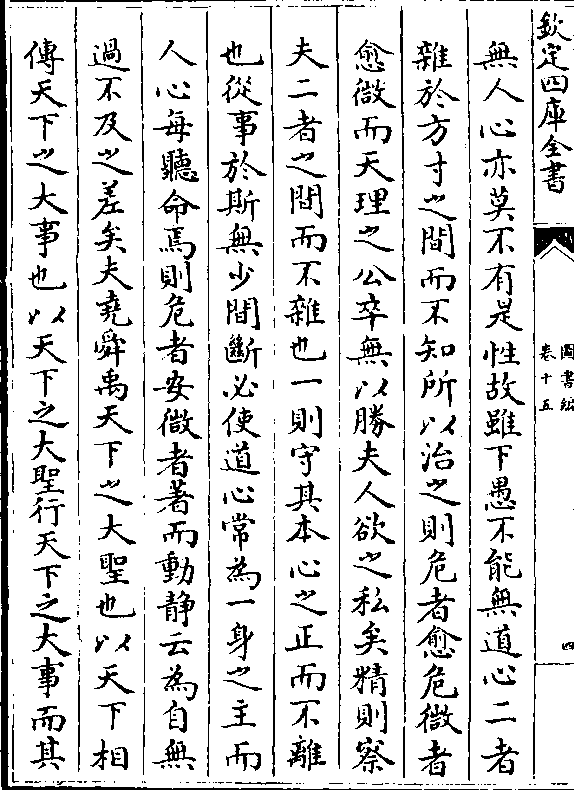 欽定四庫全書
圖書編
卷十五
四
無人心亦莫不有是性故雖下愚不能無道心二者
雜於方寸之間而不知所以治之則危者愈危微者
愈微而天理之公卒無以勝夫人欲之私矣精則察
夫二者之間而不雜也一則守其本心之正而不離
也從事於斯無少間斷必使道心常為一身之主而
人心每聽命焉則危者安微者著而動静云為自無
過不及之差矣夫堯舜禹天下之大聖也以天下相
傳天下之大事也以天下之大聖行天下之大事而其